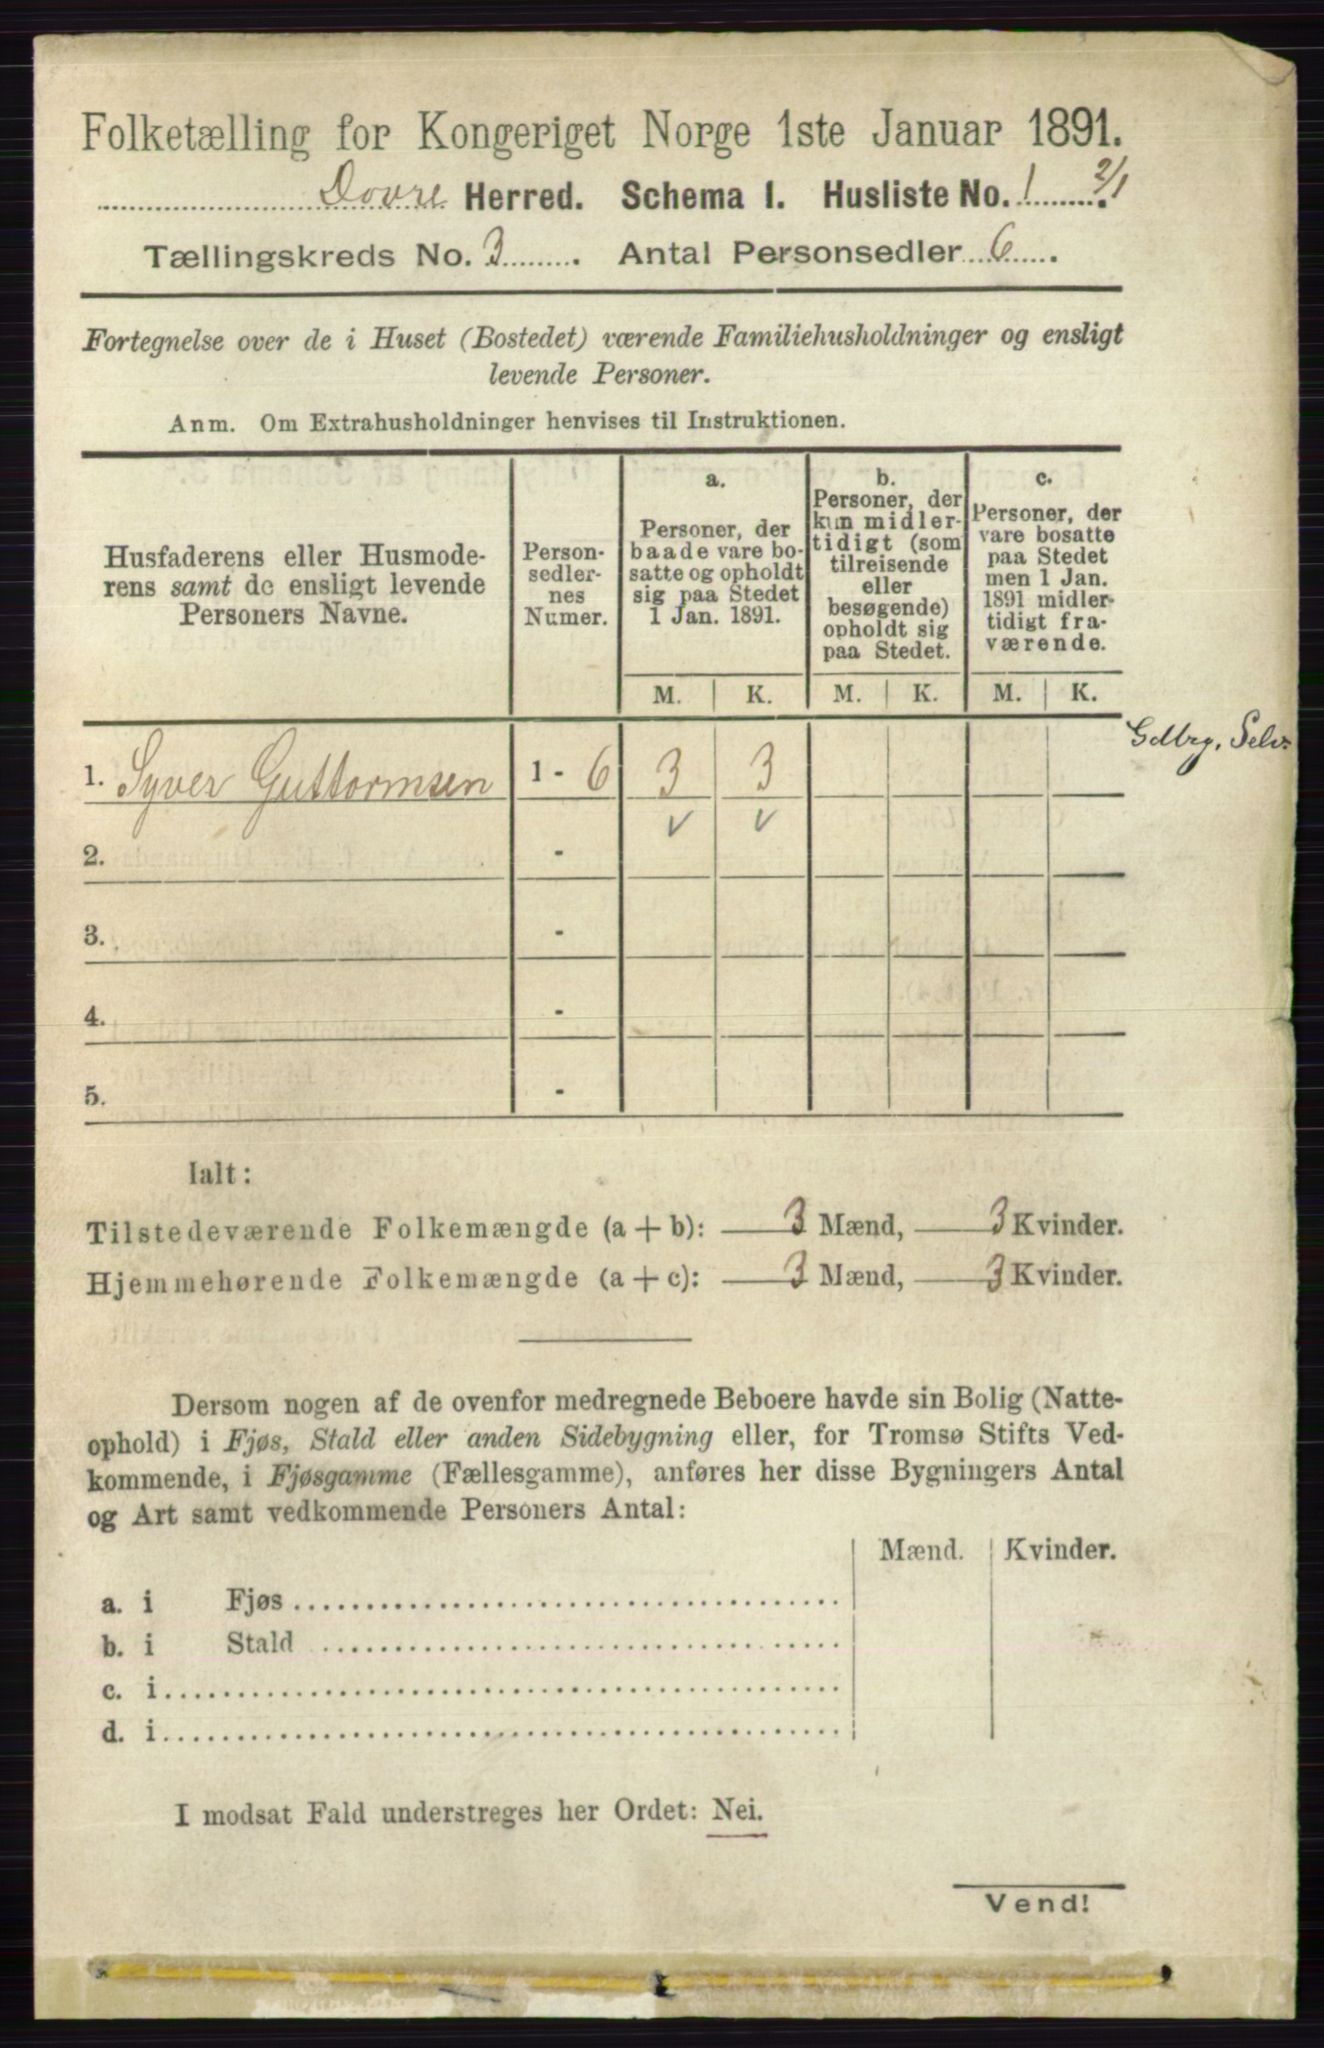 Folketælling for Kongeriget Norge 1ste Januar 1891.
Dovre Herred. Schema I. Husliste No. 1 2/1
Tællingskreds No. 3. Antal Personsedler 6.
Fortegnelse over de i Huset (Bostedet) værende Familiehusholdninger og ensligt
levende Personer.
Anm. Om Extrahusholdninger henvises til Instruktionen.
Husfaderens eller Husmode-
rens samt de ensligt levende
Personers Navne.
Person-
sedler-
nes
Numer.
a.
Personer, der
baade vare bo-
satte og opholdt
sig paa Stedet
1 Jan. 1891.
b.
Personer, der
kun midler-
tidigt (som
tilreisende
eller
besøgende)
opholdt sig
paa Stedet.
c.
Personer, der
vare bosatte
paa Stedet
men 1 Jan.
1891 midler-
tidigt fra-
værende.
M. K. M. K. M. K.
Gdbrg, Selv.
1. Syver Guttormsen 1 - 6 3 3
2. -
3. -
4. -
5. -
Ialt:
Tilstedeværende Folkemængde (a + b): 3 Mænd, 3 Kvinder.
Hjemmehørende Folkemængde (a + c): 3 Mænd, 3 Kvinder.
Dersom nogen af de ovenfor medregnede Beboere havde sin Bolig (Natte-
ophold) i Fjøs, Stald eller anden Sidebygning eller, for Tromsø Stifts Ved-
kommende, i Fjøsgamme (Fællesgamme), anføres her disse Bygningers Antal
og Art samt vedkommende Personers Antal:
Mænd. Kvinder.
a. i Fjøs
b. i Stald
c. i
d. i
I modsat Fald understreges her Ordet: Nei.
Vend!